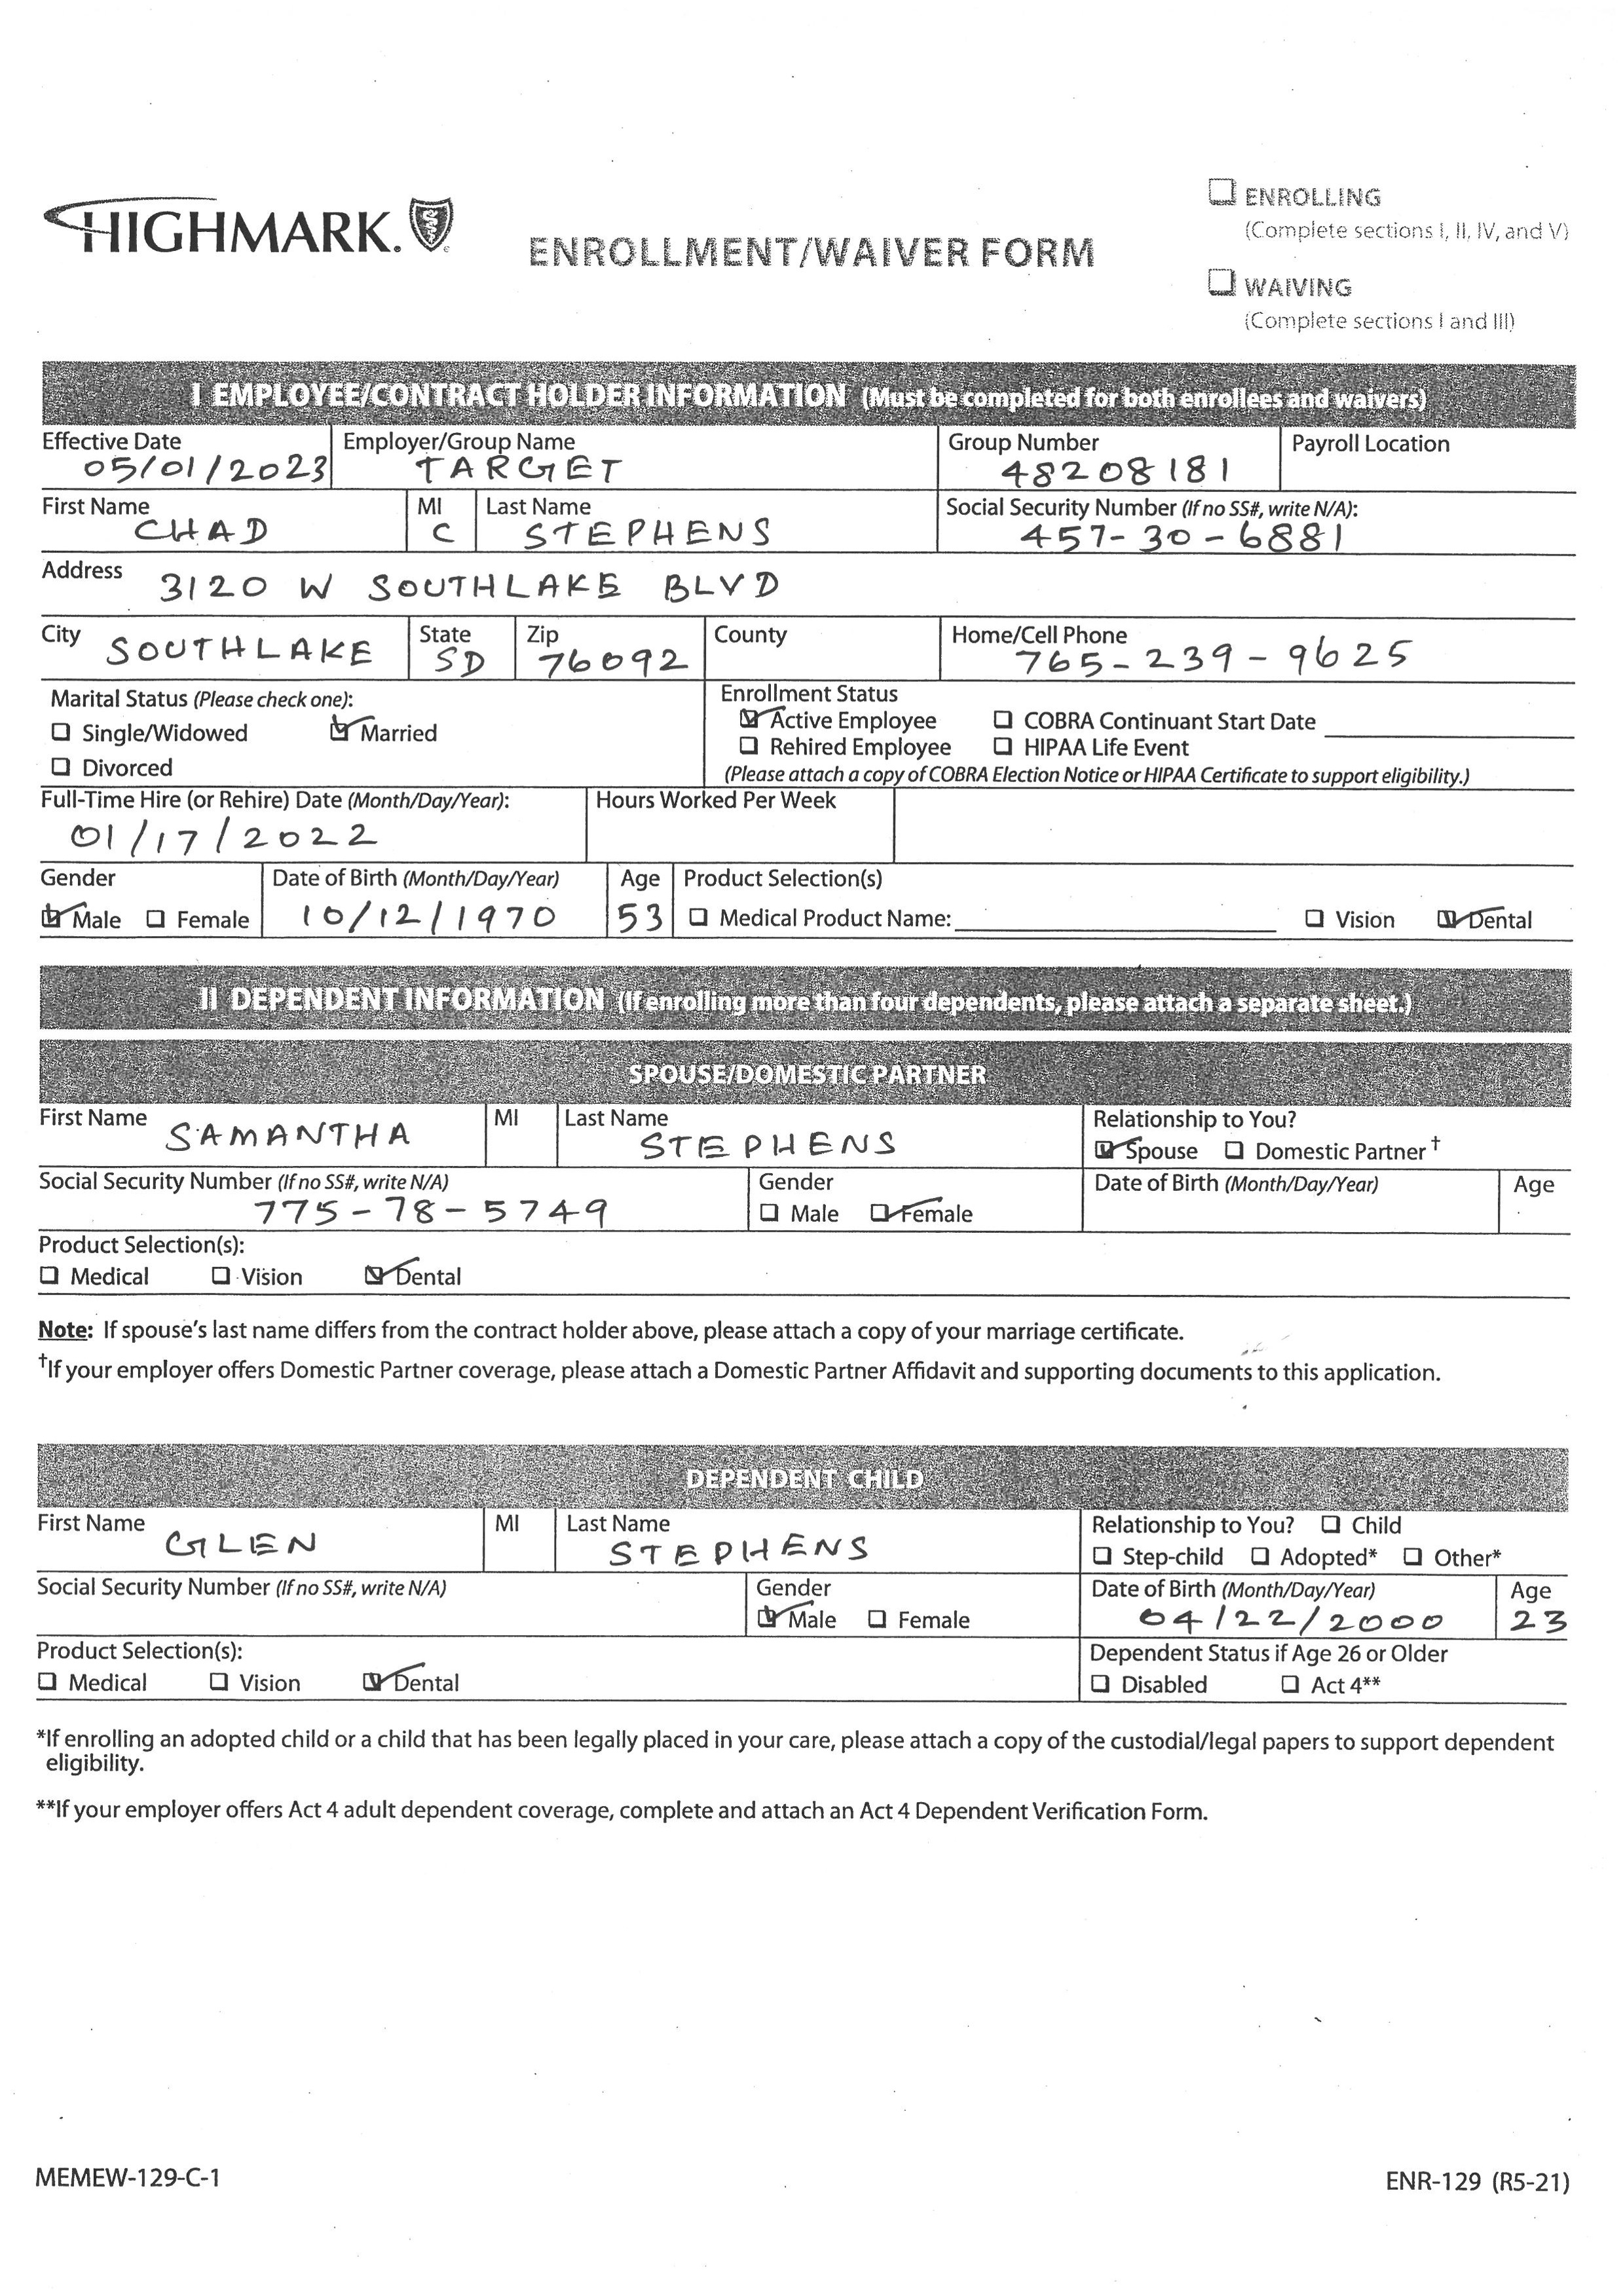 HIGHMARK.
ENROLLMENT/WAIVER FORM
☐ ENROLLING
(Complete sections I, II, IV, and V)
☐ WAIVING
(Complete sections I and III)
I EMPLOYEE/CONTRACT HOLDER INFORMATION (Must be completed for both enrollees and waivers)
Effective Date Employer/Group Name Group Number Payroll Location
05/01/2023 TARGET 48208181
First Name MI Last Name Social Security Number (If no SS#, write N/A):
CHAD C STEPHENS 457-30-6881
Address 3120 W SOUTHLAKE BLVD
City State Zip County Home/Cell Phone
SOUTHLAKE SD 76092 765-239-9625
Marital Status (Please check one): Enrollment Status
☐ Single/Widowed ☑ Married ☑ Active Employee ☐ COBRA Continuant Start Date
☐ Divorced ☐ Rehired Employee ☐ HIPAA Life Event
(Please attach a copy of COBRA Election Notice or HIPAA Certificate to support eligibility.)
Full-Time Hire (or Rehire) Date (Month/Day/Year): Hours Worked Per Week
01/17/2022
Gender Date of Birth (Month/Day/Year) Age Product Selection(s)
☑ Male ☐ Female 10/12/1970 53 ☐ Medical Product Name: ☐ Vision ☑ Dental
II DEPENDENT INFORMATION (If enrolling more than four dependents, please attach a separate sheet.)
SPOUSE/DOMESTIC PARTNER
First Name MI Last Name Relationship to You?
SAMANTHA STEPHENS ☑ Spouse ☐ Domestic Partner†
Social Security Number (If no SS#, write N/A) Gender Date of Birth (Month/Day/Year) Age
775-78-5749 ☐ Male ☑ Female
Product Selection(s):
☐ Medical ☐ Vision ☑ Dental
Note: If spouse's last name differs from the contract holder above, please attach a copy of your marriage certificate.
†If your employer offers Domestic Partner coverage, please attach a Domestic Partner Affidavit and supporting documents to this application.
DEPENDENT CHILD
First Name MI Last Name Relationship to You? ☐ Child
GLEN STEPHENS ☐ Step-child ☐ Adopted* ☐ Other*
Social Security Number (If no SS#, write N/A) Gender Date of Birth (Month/Day/Year) Age
☑ Male ☐ Female 04/22/2000 23
Product Selection(s): Dependent Status if Age 26 or Older
☐ Medical ☐ Vision ☑ Dental ☐ Disabled ☐ Act 4**
*If enrolling an adopted child or a child that has been legally placed in your care, please attach a copy of the custodial/legal papers to support dependent
eligibility.
**If your employer offers Act 4 adult dependent coverage, complete and attach an Act 4 Dependent Verification Form.
MEMEW-129-C-1 ENR-129 (R5-21)